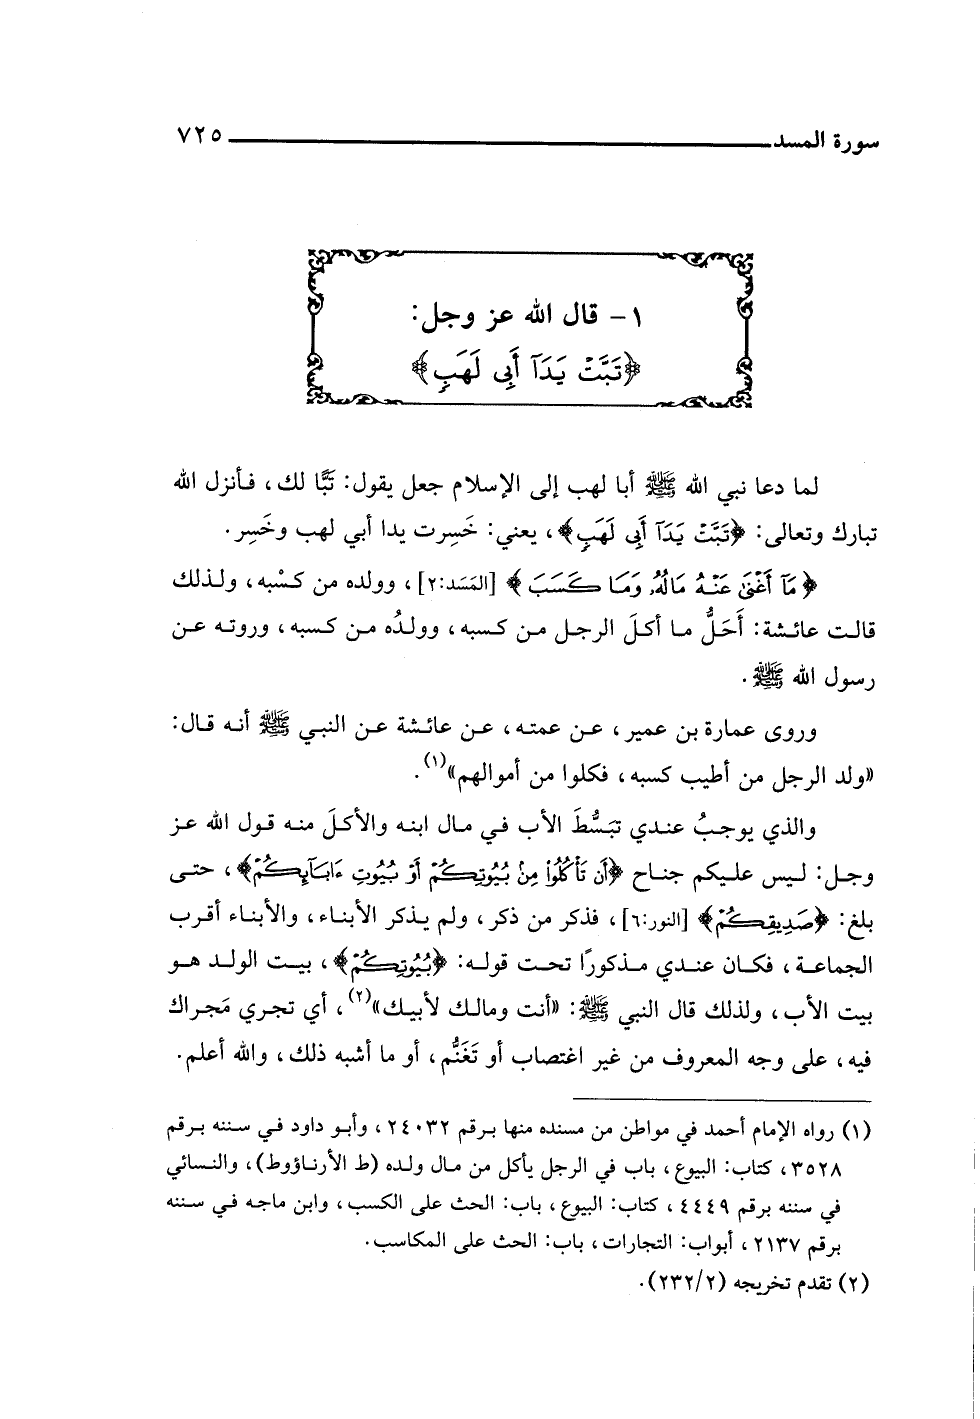 سورة المسد ٧٢٥
١- قال الله عز وجل:
﴿تَبَّتْ يَدَآ أَبِى لَهَبٍ﴾
لما دعا نبي الله ﷺ أبا لهب إلى الإسلام جعل يقول: تَبًّا لك، فأنزل الله
تبارك وتعالى: ﴿تَبَّتْ يَدَآ أَبِى لَهَبٍ﴾، يعني: خَسِرت يدا أبي لهب وخَسِر.
﴿مَآ أَغْنَىٰ عَنْهُ مَالُهُۥ وَمَا كَسَبَ﴾ [المَسَد:٢]، وولده من كسْبه، ولذلك
قالت عائشة: أَحَلُّ ما أكلَ الرجل من كسبه، وولدُه من كسبه، وروته عن
رسول الله ﷺ.
وروى عمارة بن عمير، عن عمته، عن عائشة عن النبي ﷺ أنه قال:
«ولد الرجل من أطيب كسبه، فكلوا من أموالهم»(١).
والذي يوجبُ عندي تبَسُّطَ الأب في مال ابنه والأكلَ منه قول الله عز
وجل: ليس عليكم جناح ﴿أَن تَأْكُلُوا۟ مِنۢ بُيُوتِكُمْ أَوْ بُيُوتِ ءَابَآئِكُمْ﴾، حتى
بلغ: ﴿صَدِيقِكُمْ﴾ [النور:٦]، فذكر من ذكر، ولم يذكر الأبناء، والأبناء أقرب
الجماعة، فكان عندي مذكورًا تحت قوله: ﴿بُيُوتِكُمْ﴾، بيت الولد هو
بيت الأب، ولذلك قال النبي ﷺ: «أنت ومالك لأبيك»(٢)، أي تجري مَجراك
فيه، على وجه المعروف من غير اغتصاب أو تَغَنُّم، أو ما أشبه ذلك، والله أعلم.
(١) رواه الإمام أحمد في مواطن من مسنده منها برقم ٢٤٠٣٢، وأبو داود في سننه برقم
٣٥٢٨، كتاب: البيوع، باب في الرجل يأكل من مال ولده (ط الأرناؤوط)، والنسائي
في سننه برقم ٤٤٤٩، كتاب: البيوع، باب: الحث على الكسب، وابن ماجه في سننه
برقم ٢١٣٧، أبواب: التجارات، باب: الحث على المكاسب.
(٢) تقدم تخريجه (٢٣٢/٢).